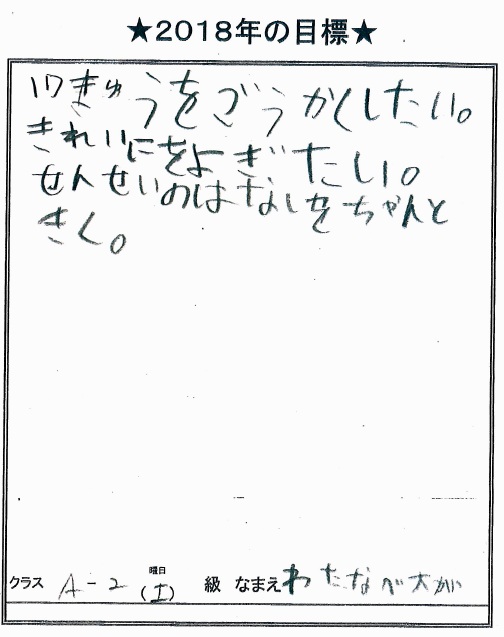 ★2018年の目標★
17きゅうをごうかくしたい。
きれいにをよぎたい。
せんせいのはなしをちゃんと
きく。
クラス A-2 曜日(土) 級 なまえ わたなべ大